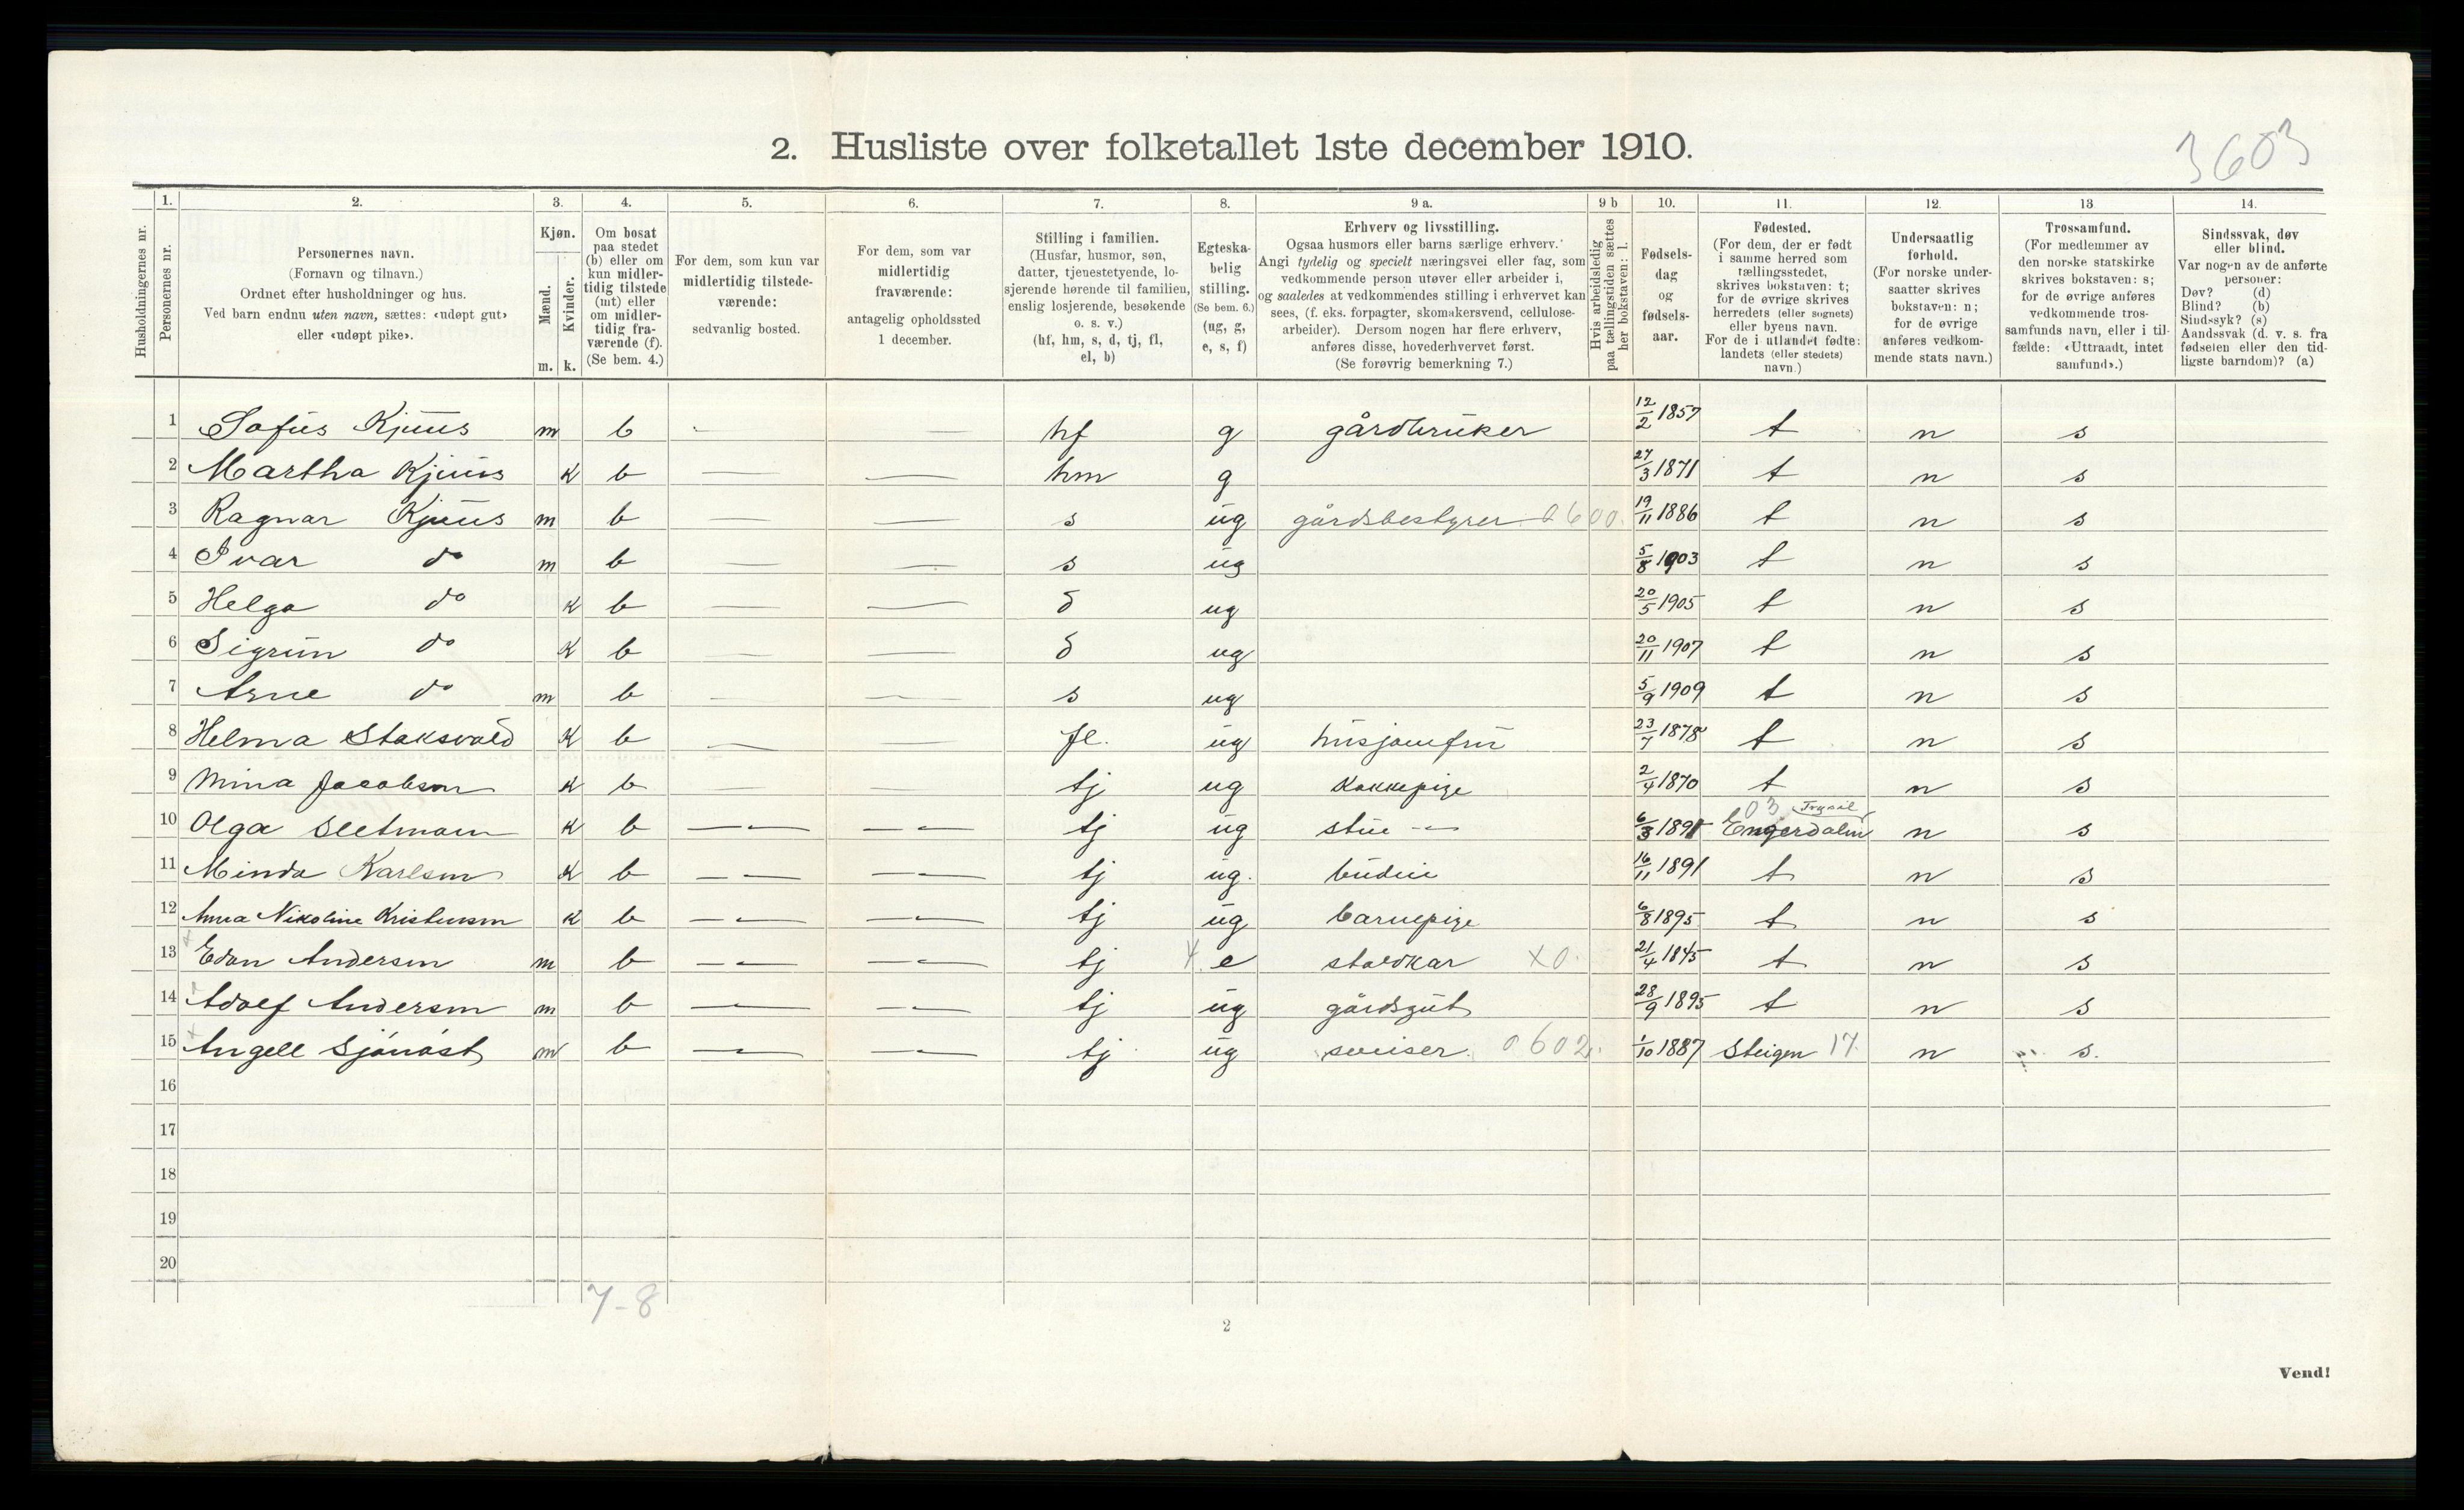 2. Husliste over folketallet 1ste december 1910.
3603
Husholdningernes nr.
1. Personernes nr.
2. Personernes navn.
(Fornavn og tilnavn.)
Ordnet efter husholdninger og hus.
Ved barn endnu uten navn, sættes: «udøpt gut»
eller «udøpt pike».
3. Kjøn.
Mænd. m.
Kvinder. k.
4. Om bosat
paa stedet
(b) eller om
kun midler-
tidig tilstede
(mt) eller
om midler-
tidig fra-
værende (f).
(Se bem. 4.)
5. For dem, som kun var
midlertidig tilstede-
værende:
sedvanlig bosted.
6. For dem, som var
midlertidig
fraværende:
antagelig opholdssted
1 december.
7. Stilling i familien.
(Husfar, husmor, søn,
datter, tjenestetyende, lo-
sjerende hørende til familien,
enslig losjerende, besøkende
o. s. v.)
(hf, hm, s, d, tj, fl,
el, b)
8. Egteska-
belig
stilling.
(Se bem. 6.)
(ug, g,
e, s, f)
9 a. Erhverv og livsstilling.
Ogsaa husmors eller barns særlige erhverv.
Angi tydelig og specielt næringsvei eller fag, som
vedkommende person utøver eller arbeider i,
og saaledes at vedkommendes stilling i erhvervet kan
sees, (f. eks. forpagter, skomakersvend, cellulose-
arbeider). Dersom nogen har flere erhverv,
anføres disse, hovederhvervet først.
(Se forøvrig bemerkning 7.)
9 b Hvis arbeidsledig
paa tællingstiden sættes
her bokstaven: l.
10. Fødsels-
dag
og
fødsels-
aar.
11. Fødested.
(For dem, der er født
i samme herred som
tællingsstedet,
skrives bokstaven: t;
for de øvrige skrives
herredets (eller sognets)
eller byens navn.
For de i utlandet fødte:
landets (eller stedets)
navn.)
12. Undersaatlig
forhold.
(For norske under-
saatter skrives
bokstaven: n;
for de øvrige
anføres vedkom-
mende stats navn.)
13 Trossamfund.
(For medlemmer av
den norske statskirke
skrives bokstaven: s;
for de øvrige anføres
vedkommende tros-
samfunds navn, eller i til-
fælde: «Uttraadt, intet
samfund».)
14. Sindssvak, døv
eller blind.
Var nogen av de anførte
personer:
Døv? (d)
Blind? (b)
Sindssyk? (s)
Aandssvak (d. v. s. fra
fødselen eller den tid-
ligste barndom)? (a)
1 Sofus Kjuus m b — — hf g gårdbruker 12/2 1857 t n s
2 Martha Kjuus k b — — hm g 27/3 1871 t n s
3 Ragnar Kjuus m b — — s ug gårdsbestyrer 0600. 19/11 1886 t n s
4 Ivar do m b — — s ug 5/8 1903 t n s
5 Helga do k b — — d ug 20/5 1905 t n s
6 Sigrun do k b — — d ug 20/11 1907 t n s
7 Arne do m b — — s ug 5/9 1909 t n s
8 Helma Staksvold k b — — fl. ug husjomfru 23/7 1878 t n s
9 Mina Jacobsen k b — — tj ug Kokkepige 2/4 1870 t n s
03 Trysil
10 Olga Sletmoen k b — — tj ug stue -"- 6/3 1891 Engerdalen n s
11 Minda Karlsen k b — — tj ug. budeie 16/11 1891 t n s
12 Anna Nikoline Kristensen k b — — tj ug barnepige 6/8 1895 t n s
13 Edon Andersen m b — — tj e staldkar x0. 21/4 1845 t n s
14 Adolf Andersen m b — — tj ug gårdsgut 28/9 1895 t n s
15 Angell Sjånåst m b — — tj ug sveiser. 0602. 1/10 1887 Steigen 17. n s.
16
17
18
19
20
7-8
2
Vend!